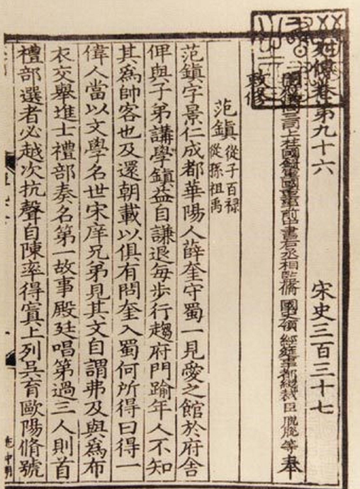 列傳卷第九十六　宋史三百三十七
開府儀同三司上柱國錄軍國重事前中書右丞相監修國史領經筵事都總裁臣脫脫等奉
敕修
范鎮 從子百祿 從孫祖禹
范鎮字景仁成都華陽人薛奎守蜀一見愛之館於府舍
俾與子弟講學鎮益自謙退每步行趨府門踰年人不知
其為帥客也及還朝載以俱有問奎入蜀何所得曰得一
偉人當以文學名世宋庠兄弟見其文自謂弗及與為布
衣交舉進士禮部奏名第一故事殿廷唱第過三人則首
禮部選者必越次抗聲自陳率得寘上列吳育歐陽脩號